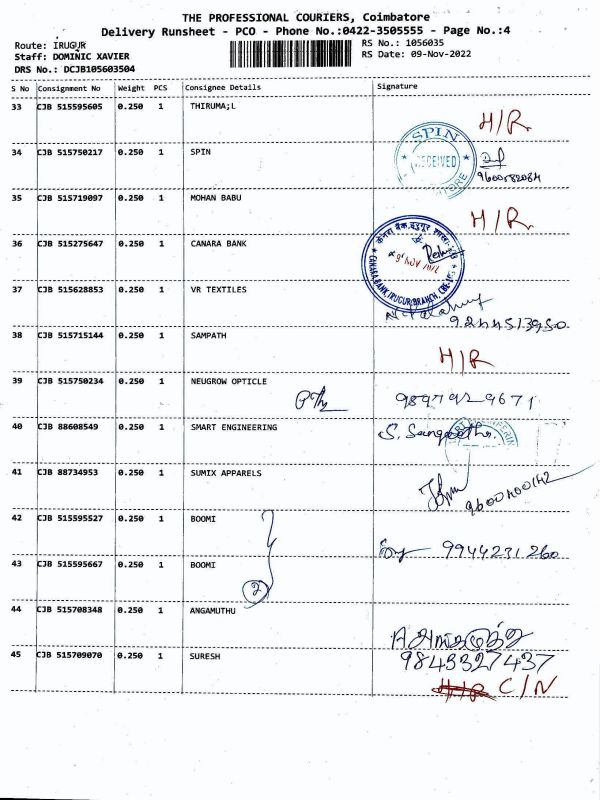 THE PROFESSIONAL COURIERS, Coimbatore
Delivery Runsheet - PCO - Phone No.:0422-3505555 - Page No.:4
Route: IRUGUR
RS No.: 1056035
Staff: DOMINIC XAVIER
RS Date: 09-Nov-2022
DRS No.: DCJB105603504
S No Consignment No Weight PCS Consignee Details Signature
33 CJB 515595605 0.250 1 THIRUMA;L
H/R
34 CJB 515750217 0.250 1 SPIN
SPIN
RECEIVED
35 CJB 515719097 0.250 1 MOHAN BABU
H/R
36 CJB 515275647 0.250 1 CANARA BANK
CANARA BANK, IRUGUR BRANCH, CBE
37 CJB 515628853 0.250 1 VR TEXTILES
38 CJB 515715144 0.250 1 SAMPATH
H/R
39 CJB 515750234 0.250 1 NEUGROW OPTICLE
9897929671
40 CJB 88608549 0.250 1 SMART ENGINEERING
41 CJB 88734953 0.250 1 SUMIX APPARELS
9600400142
42 CJB 515595527 0.250 1 BOOMI
9944231260
43 CJB 515595667 0.250 1 BOOMI
2
44 CJB 515708348 0.250 1 ANGAMUTHU
9843327437
45 CJB 515709070 0.250 1 SURESH
C/N